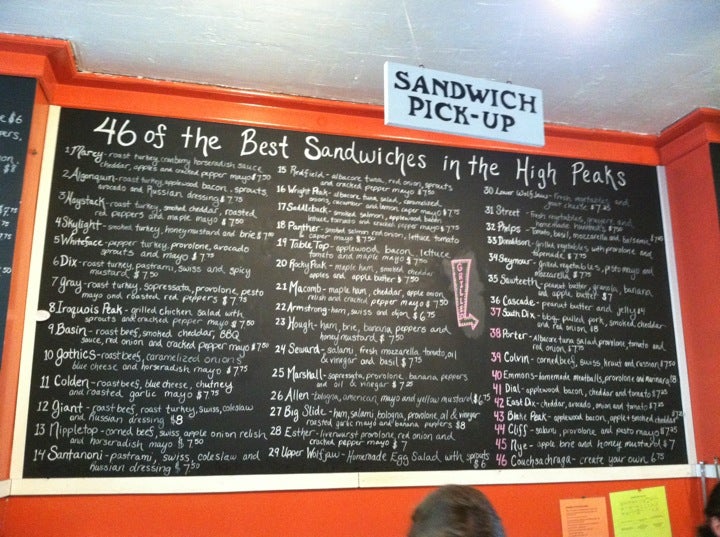 SANDWICH
PICK-UP
46 of the Best Sandwiches in the High Peaks
1 Marcy - roast turkey, cranberry horseradish sauce
cheddar, apples and cracked pepper mayo $7.50
2 Algonquin - roast turkey, applewood bacon, sprouts,
avocado and Russian dressing $7.75
3 Haystack - roast turkey, smoked cheddar, roasted
red peppers and maple mayo $7.50
4 Skylight - smoked turkey, honey mustard and brie $7.75
5 Whiteface - pepper turkey, provolone, avocado
sprouts and mayo $7.75
6 Dix - roast turkey, pastrami, swiss and spicy
mustard $7.50
7 Gray - roast turkey, sopressata, provolone, pesto
mayo and roasted red peppers $7.75
8 Iroquois Peak - grilled chicken salad with
sprouts and cracked pepper mayo $7.50
9 Basin - roast beef, smoked cheddar, BBQ
sauce, red onion and cracked pepper mayo $7.50
10 Gothics - roast beef, caramelized onions
blue cheese and horseradish mayo $7.75
11 Colden - roast beef, blue cheese, chutney
and roasted garlic mayo $7.50
12 Giant - roast beef, roast turkey, swiss, coleslaw
and russian dressing $8
13 Nippletop - corned beef, swiss, apple onion relish
and horseradish mayo $7.50
14 Santanoni - pastrami, swiss, coleslaw and
russian dressing $7.50
15 Redfield - albacore tuna, red onion, sprouts
and cracked pepper mayo $7.50
16 Wright Peak - albacore tuna salad, caramelized
onions, cucumber and lemon caper mayo $7.75
17 Saddleback - smoked salmon, applewood bacon,
lettuce, tomato and cracked pepper mayo $7.75
18 Panther - smoked salmon red onion, lettuce tomato
& caper mayo $7.50
19 Table Top - applewood bacon, lettuce
tomato and maple mayo $7.50
20 Rocky Peak - maple ham, smoked cheddar
apples and apple butter $7.50
21 Macomb - maple ham, cheddar, apple onion
relish and cracked pepper mayo $7.50
22 Armstrong - ham, swiss and dijon $6.75
23 Hough - ham, brie, banana peppers and
honey mustard $7.50
24 Seward - salami, fresh mozzarella, tomato, oil
& vinegar and basil $7.75
25 Marshall - sopressata, provolone, banana peppers
and oil & vinegar $7.25
26 Allen - bologna, american, mayo and yellow mustard $6.75
27 Big Slide - ham, salami, bologna, provolone, oil & vinegar
roasted garlic mayo and banana peppers $8
28 Esther - liverwurst provolone, red onion and
cracked pepper mayo $7
29 Upper Wolfjaw - Homemade Egg Salad with sprouts
$6
GRILLED
30 Lower Wolfjaw - Fresh vegetables and
your cheese $7.25
31 Street - Fresh vegetables, gruyere and
homemade hummus $7.50
32 Phelps - Fresh
tomato, basil, mozzarella and balsamic $7.75
33 Donaldson - grilled vegetables with provolone and
tapenade $7.75
34 Seymour - grilled vegetables, pesto mayo and
mozzarella $
35 Sawteeth - peanut butter, granola, banana
and apple butter $7
36 Cascade - peanut butter and jelly $4
37 South Dix - bbq pulled pork, smoked cheddar
and red onion $8
38 Porter - Albacore tuna salad, provolone, tomato and
red onion $7.75
39 Colvin - corned beef, swiss, kraut and russian $7.50
40 Emmons - homemade meatballs, provolone and marinara $8
41 Dial - applewood bacon, cheddar and tomato $7.25
42 East Dix - cheddar, avocado, onion and tomato $7
43 Blake Peak - applewood bacon, apple + smoked cheddar $7.25
44 Cliff - salami, provolone, and pesto mayo $7.25
45 Nye - apple brie and honey mustard $7
46 Couchsachraga - create your own 6.75